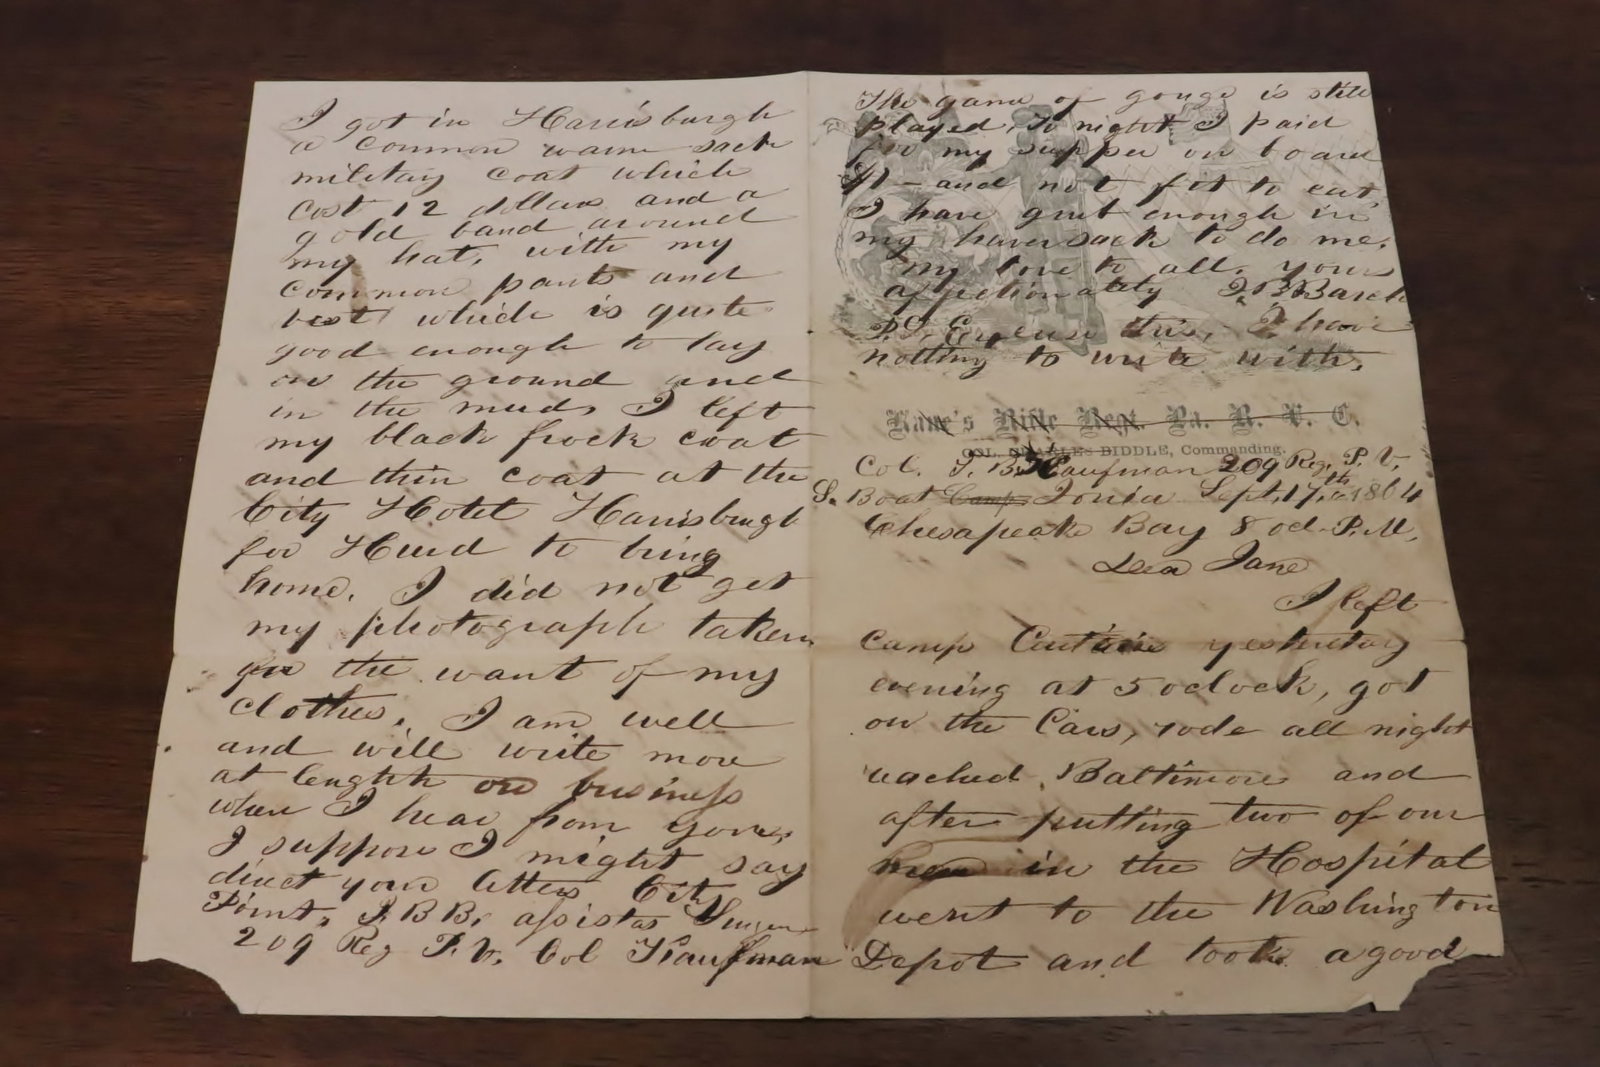 I got in Harrisburgh
a common warm sack
military coat which
cost 12 dollars and a
gold band around
my hat, with my
common pants and
vest which is quite
good enough to lay
on the ground and
in the mud, I left
my black frock coat
and thin coat at the
City Hotel Harrisburgh
for Hurd to bring
home. I did not get
my photograph taken
for the want of my
clothes. I am well
and will write more
at lenghth on business
when I hear from you,
I suppose I might say
direct your letters City
Point, J.B B, assistat Surgeon
209 Reg P.V. Col Kaufman
The game of gouge is still
played, to night I paid
for my supper on board
$1 – and not fit to eat,
I have grub enough in
my haversack to do me,
my love to all, yours
affectionately J.B. Barch
P.S. Excuse this, I have
nothing to write with.
Kane's Rifle Regt. Pa. R. V. C.
COL. CHARLES BIDDLE, Commanding.
Col. T. B. Kaufman 209 Reg. P. V.
S. Boat Camp Ionia Sept. 17th 1864
Chesapeake Bay 8 ocl. P.M.
Dear Jane
I left
Camp Curtain yesterday
evening at 5 oclock, got
on the Cars, rode all night
reached Baltimore and
after putting two of our
men in the Hospital
went to the Washington
Depot and took a good